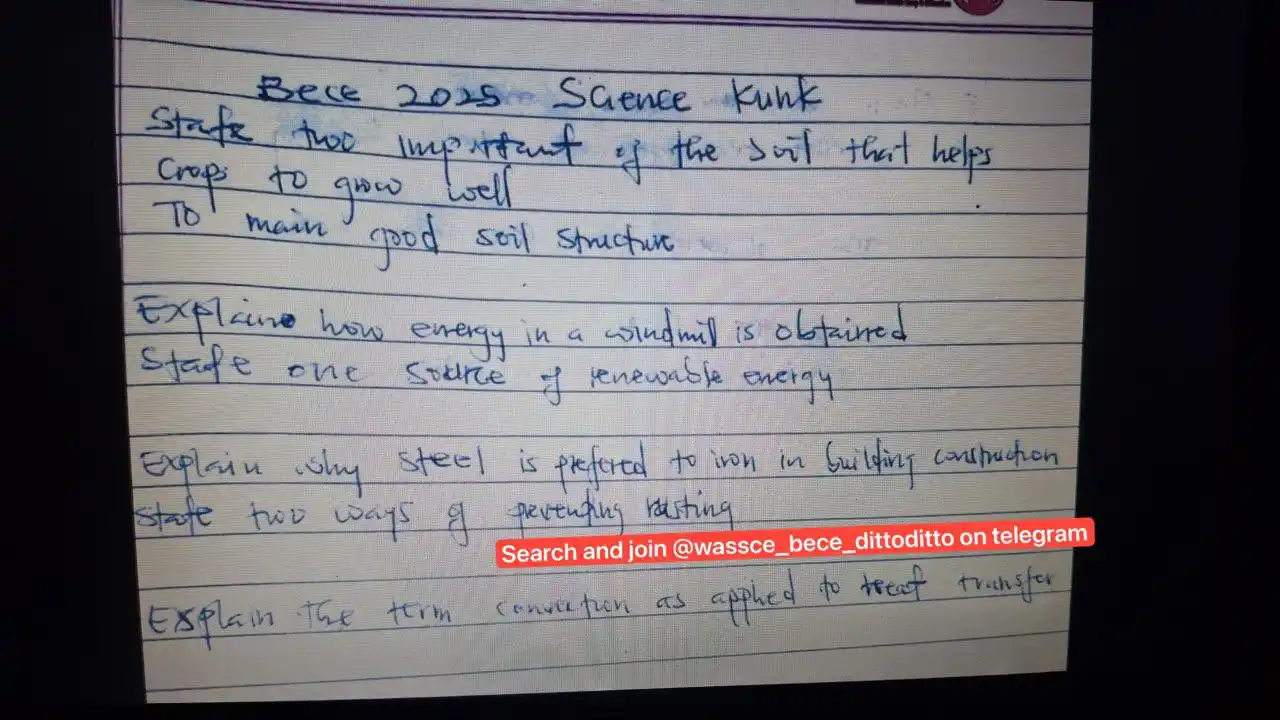 Bece 2025 Science Kunk
State two important of the soil that helps
Crops to grow well
To main good soil structure
Explain how energy in a windmill is obtained
State one source of renewable energy
Explain why steel is prefered to iron in building construction
State two ways of preventing rusting
Search and join @wassce_bece_dittoditto on telegram
Explain the term convection as applied to heat transfer